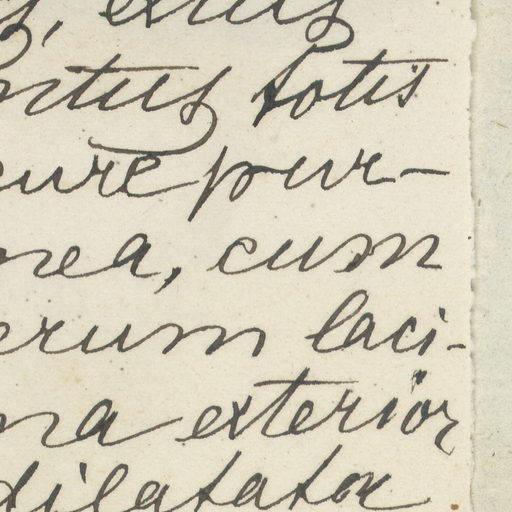 s, extus
ntus totis
cure pur-
nea, cum
erum laci-
na exterior
dilatata